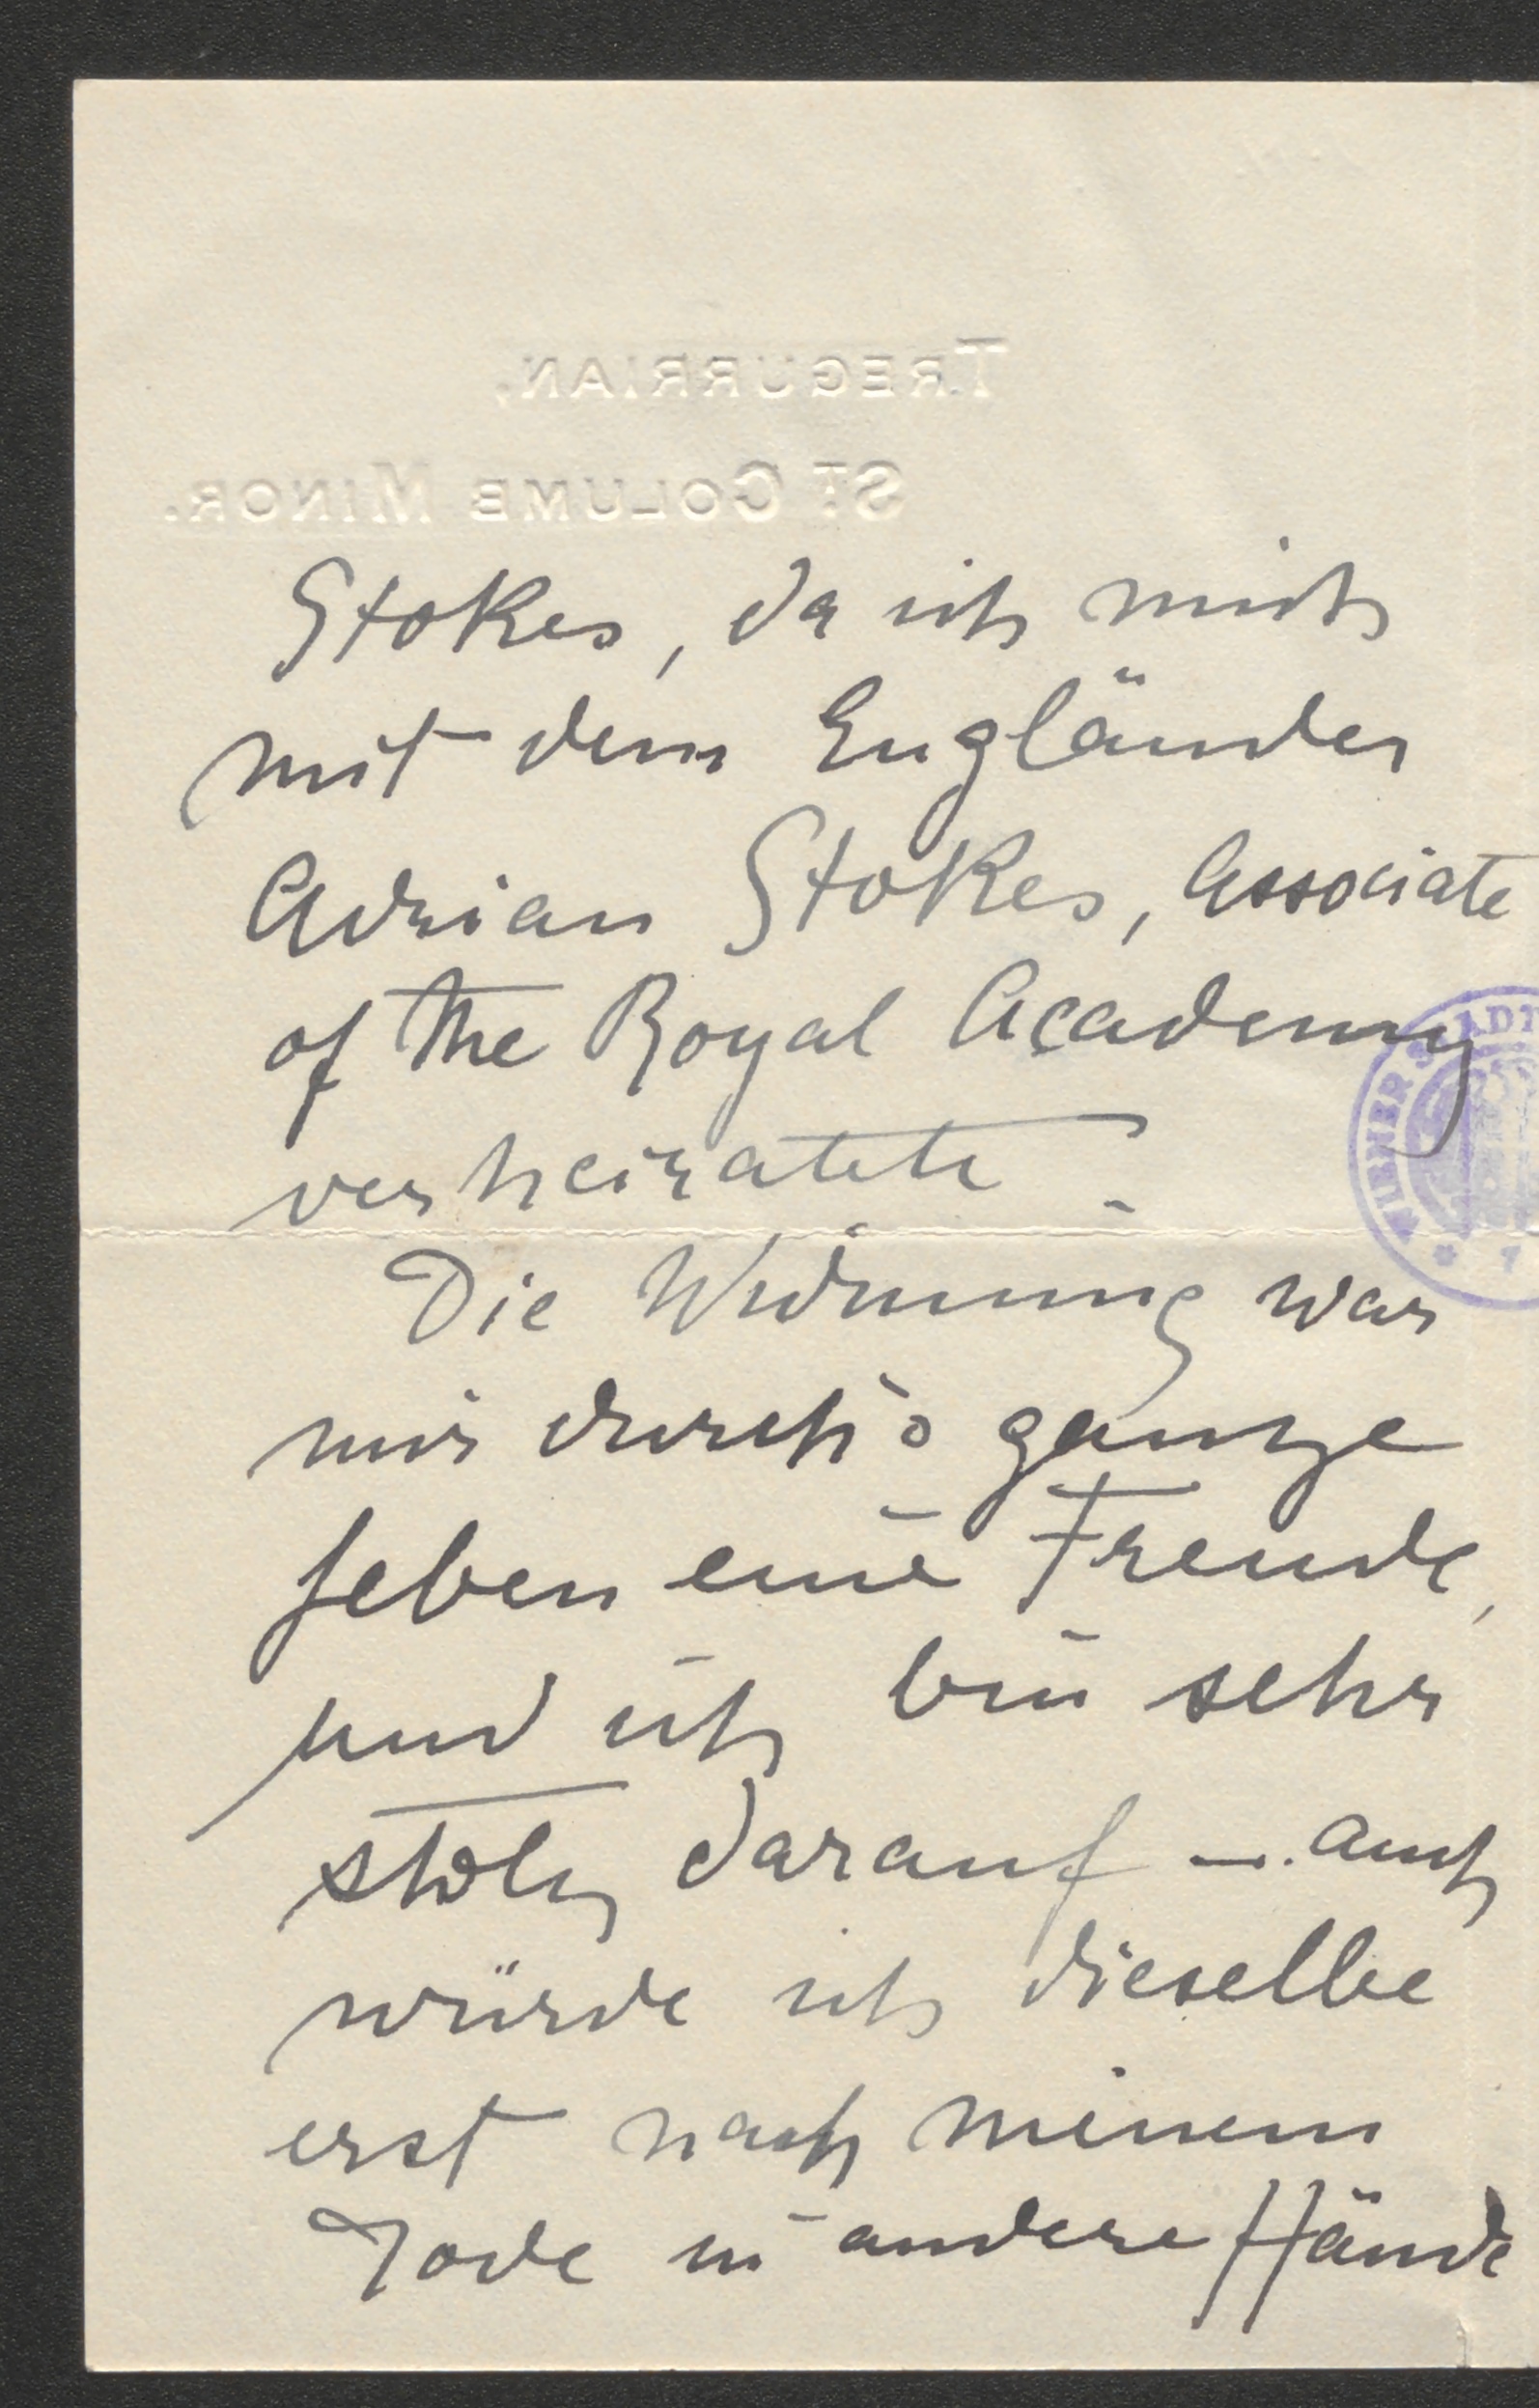 TREGURRIAN,
ST COLUMB MINOR.
Stokes, da ich mich
mit dem Engländer
Adrian Stokes, Associate
of the Royal Academy
verheiratete.
Die Widmung war
mir durch's ganze
Leben eine Freude,
und ich bin sehr
stolz darauf —. auch
würde ich dieselbe
erst nach meinem
Tode in andere Hände
WIENER STADT